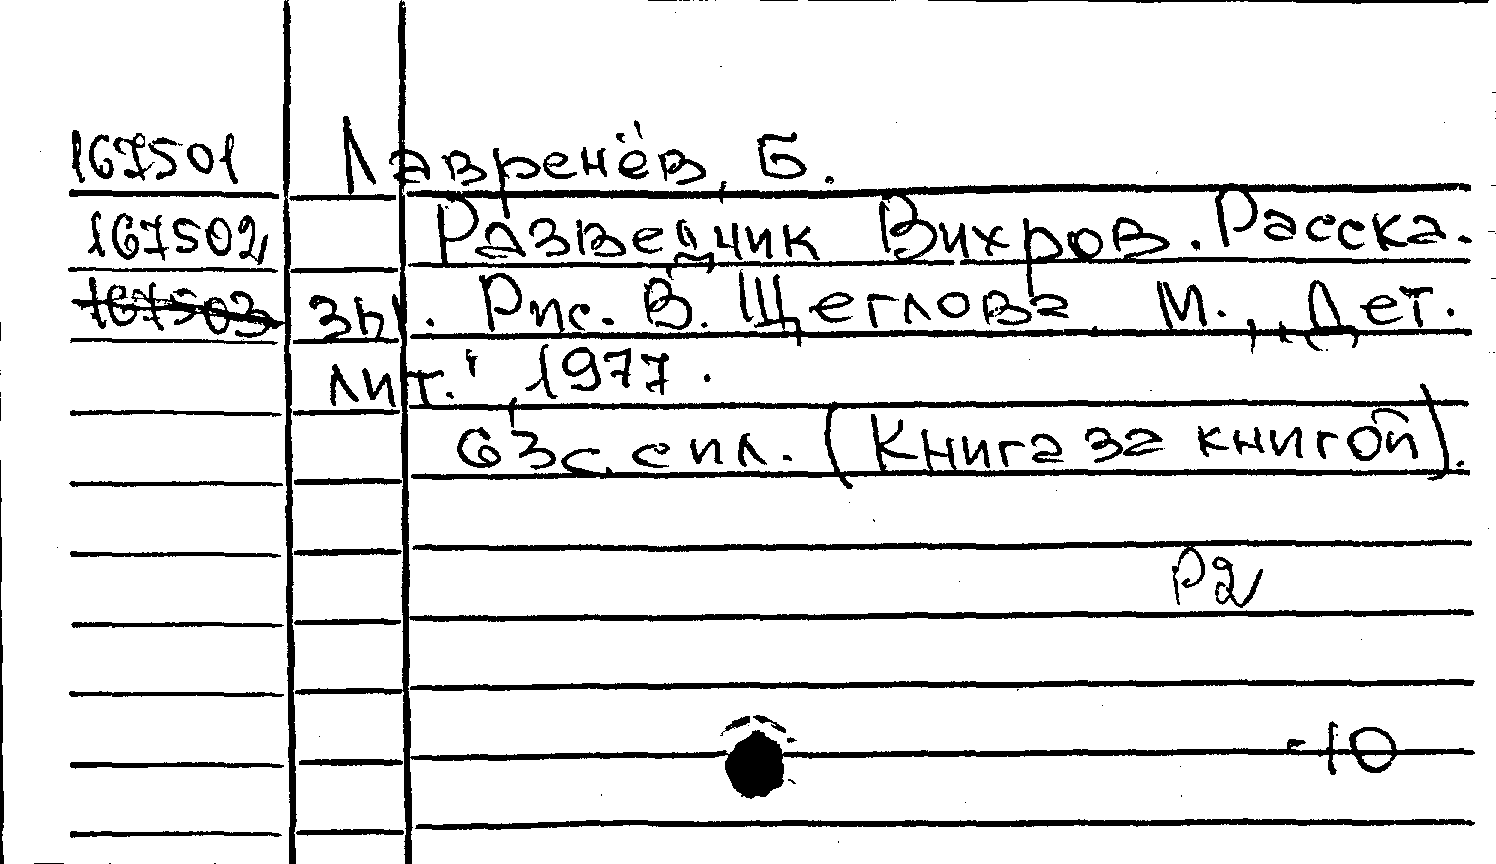 167501 Лавренёв, Б.
167502 Разведчик Вихров. Расска.
167503 зы. Рис. В. Щеглова. М., „Дет.
лит.", 1977.
63 с. с ил. (Книга за книгой).
Р2
-10